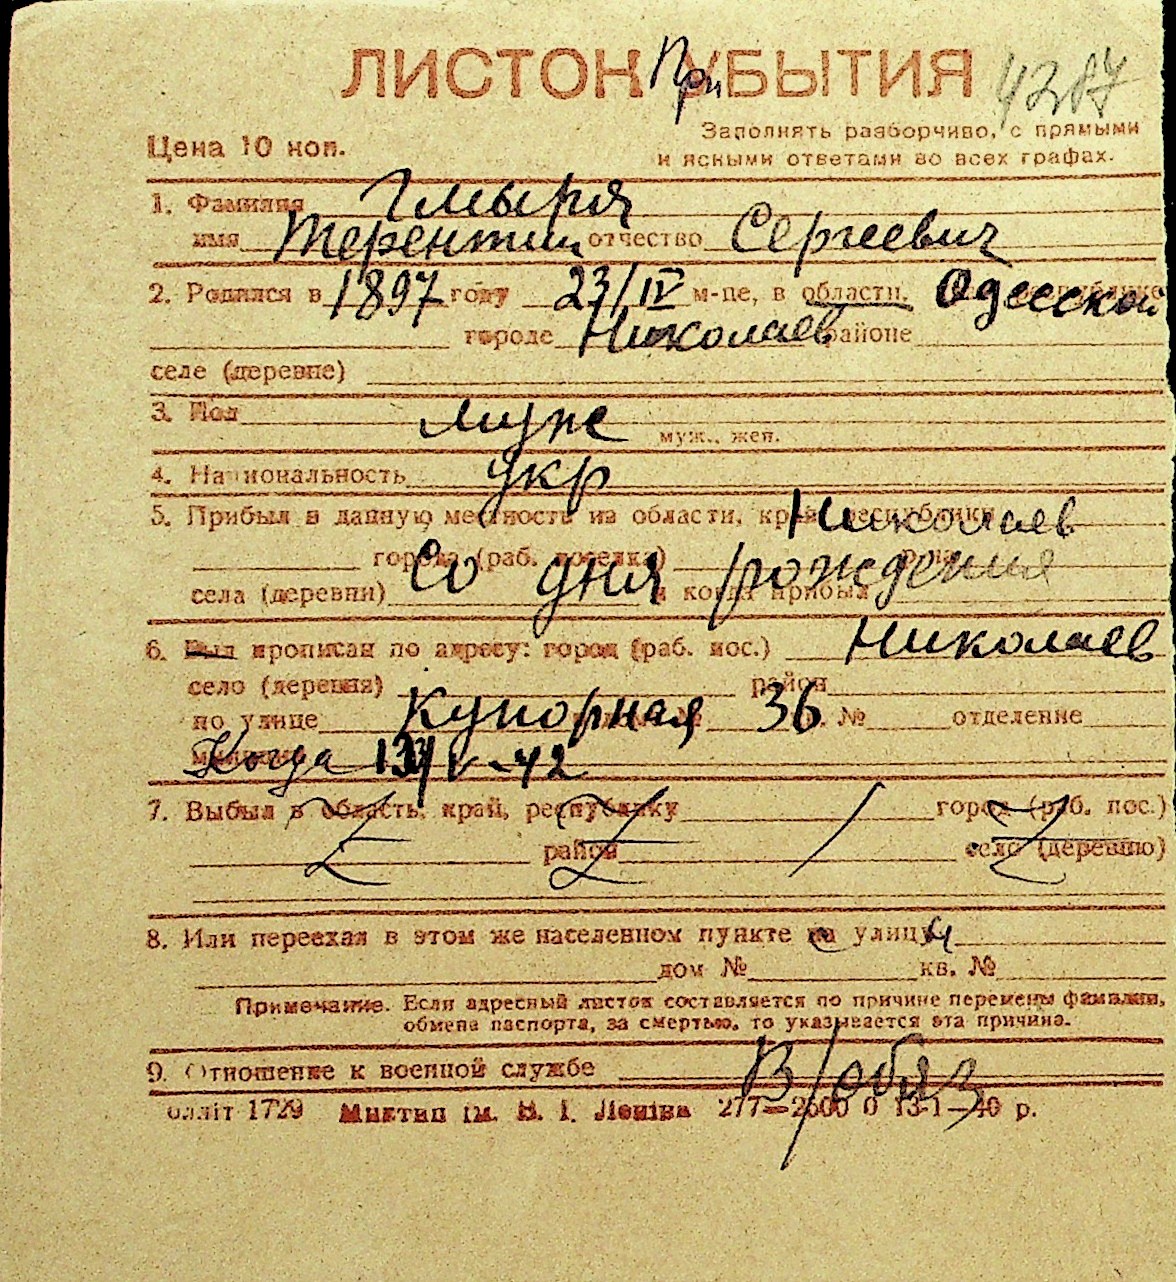 ЛИСТОК ПриБЫТИЯ 4287
Цена 10 коп.
Заполнять разборчиво, с прямыми
и ясными ответами во всех графах.
1. Фамилия Гмыря
имя Терентий отчество Сергеевич
2. Родился в 1897 году 23/IV м-це, в области, Одесской
городе Николаев районе
селе (деревне)
3. Пол муж муж., жен.
4. Национальность укр
5. Прибыл в данную местность из области, края, республики Николаев
города (раб. поселка) Со дня рождения
села (деревни) и когда прибыл
6. Был прописан по адресу: город (раб. пос.) Николаев
село (деревня) район
по улице Купорная № 36 кв. № отделение
милиции Когда 13/V-42
7. Выбыл в область, край, республику город (раб. пос.)
район село (деревню)
8. Или переехал в этом же населенном пункте с улицы
дом № кв. №
Примечание. Если адресный листок составляется по причине перемены фамилии,
обмена паспорта, за смертью, то указывается эта причина.
9. Отношение к военной службе В/обяз
олліт 1729 Миктип ім. В. І. Леніна 277—2600 0 13-1—40 р.